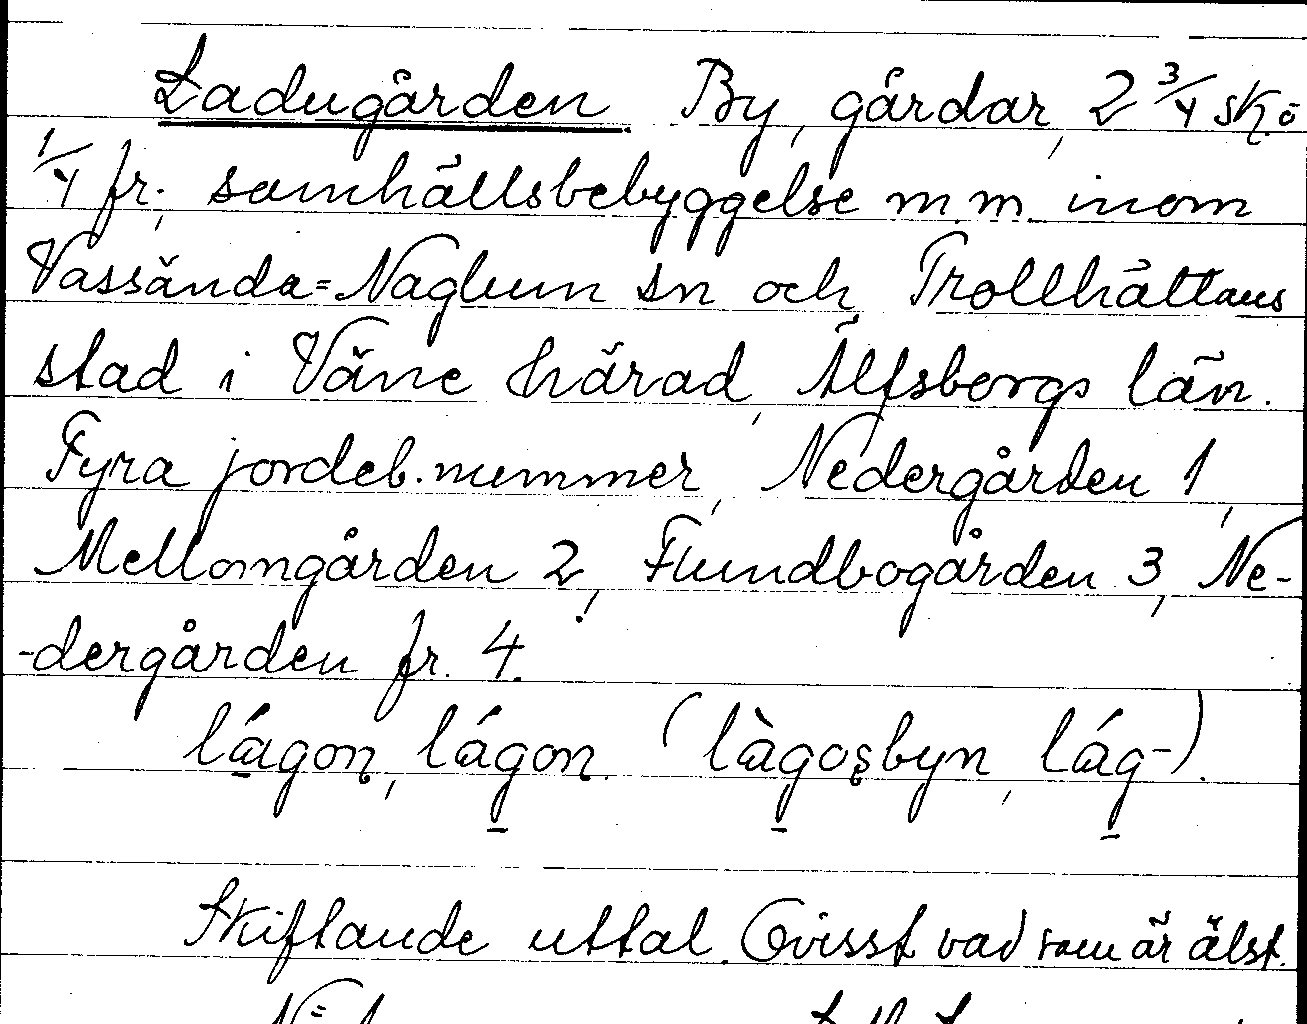 Ladugården. By, gårdar, 2 3/4 sk. ö
1/4 fr.; samhällsbebyggelse m.m. inom
Vassända-Naglum sn och Trollhättans
stad i Väne härad, Älfsborgs län.
Fyra jordeb.nummer, Nedergården 1,
Mellomgården 2, Flundbogården 3, Ne-
-dergården fr. 4.
lágon, lágon. (làgosbyn, lág-).
Skiftande uttal. Ovisst vad som är älst.